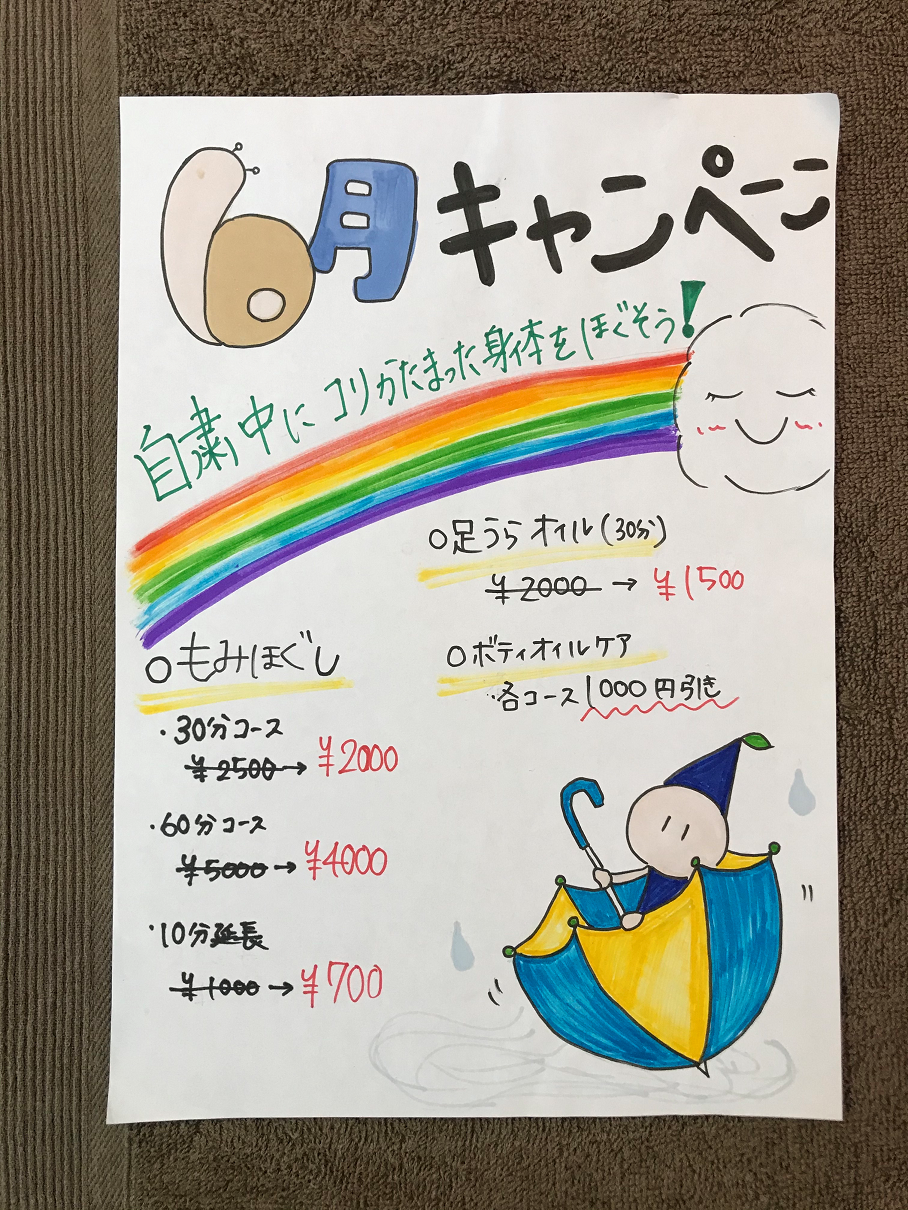 6月キャンペーン
自粛中にコリかたまった身体をほぐそう!
○足うらオイル(30分)
¥2000→¥1500
○もみほぐし
○ボディオイルケア
・各コース1000円引き
・30分コース
¥2500→¥2000
・60分コース
¥5000→¥4000
・10分延長
¥1000→¥700